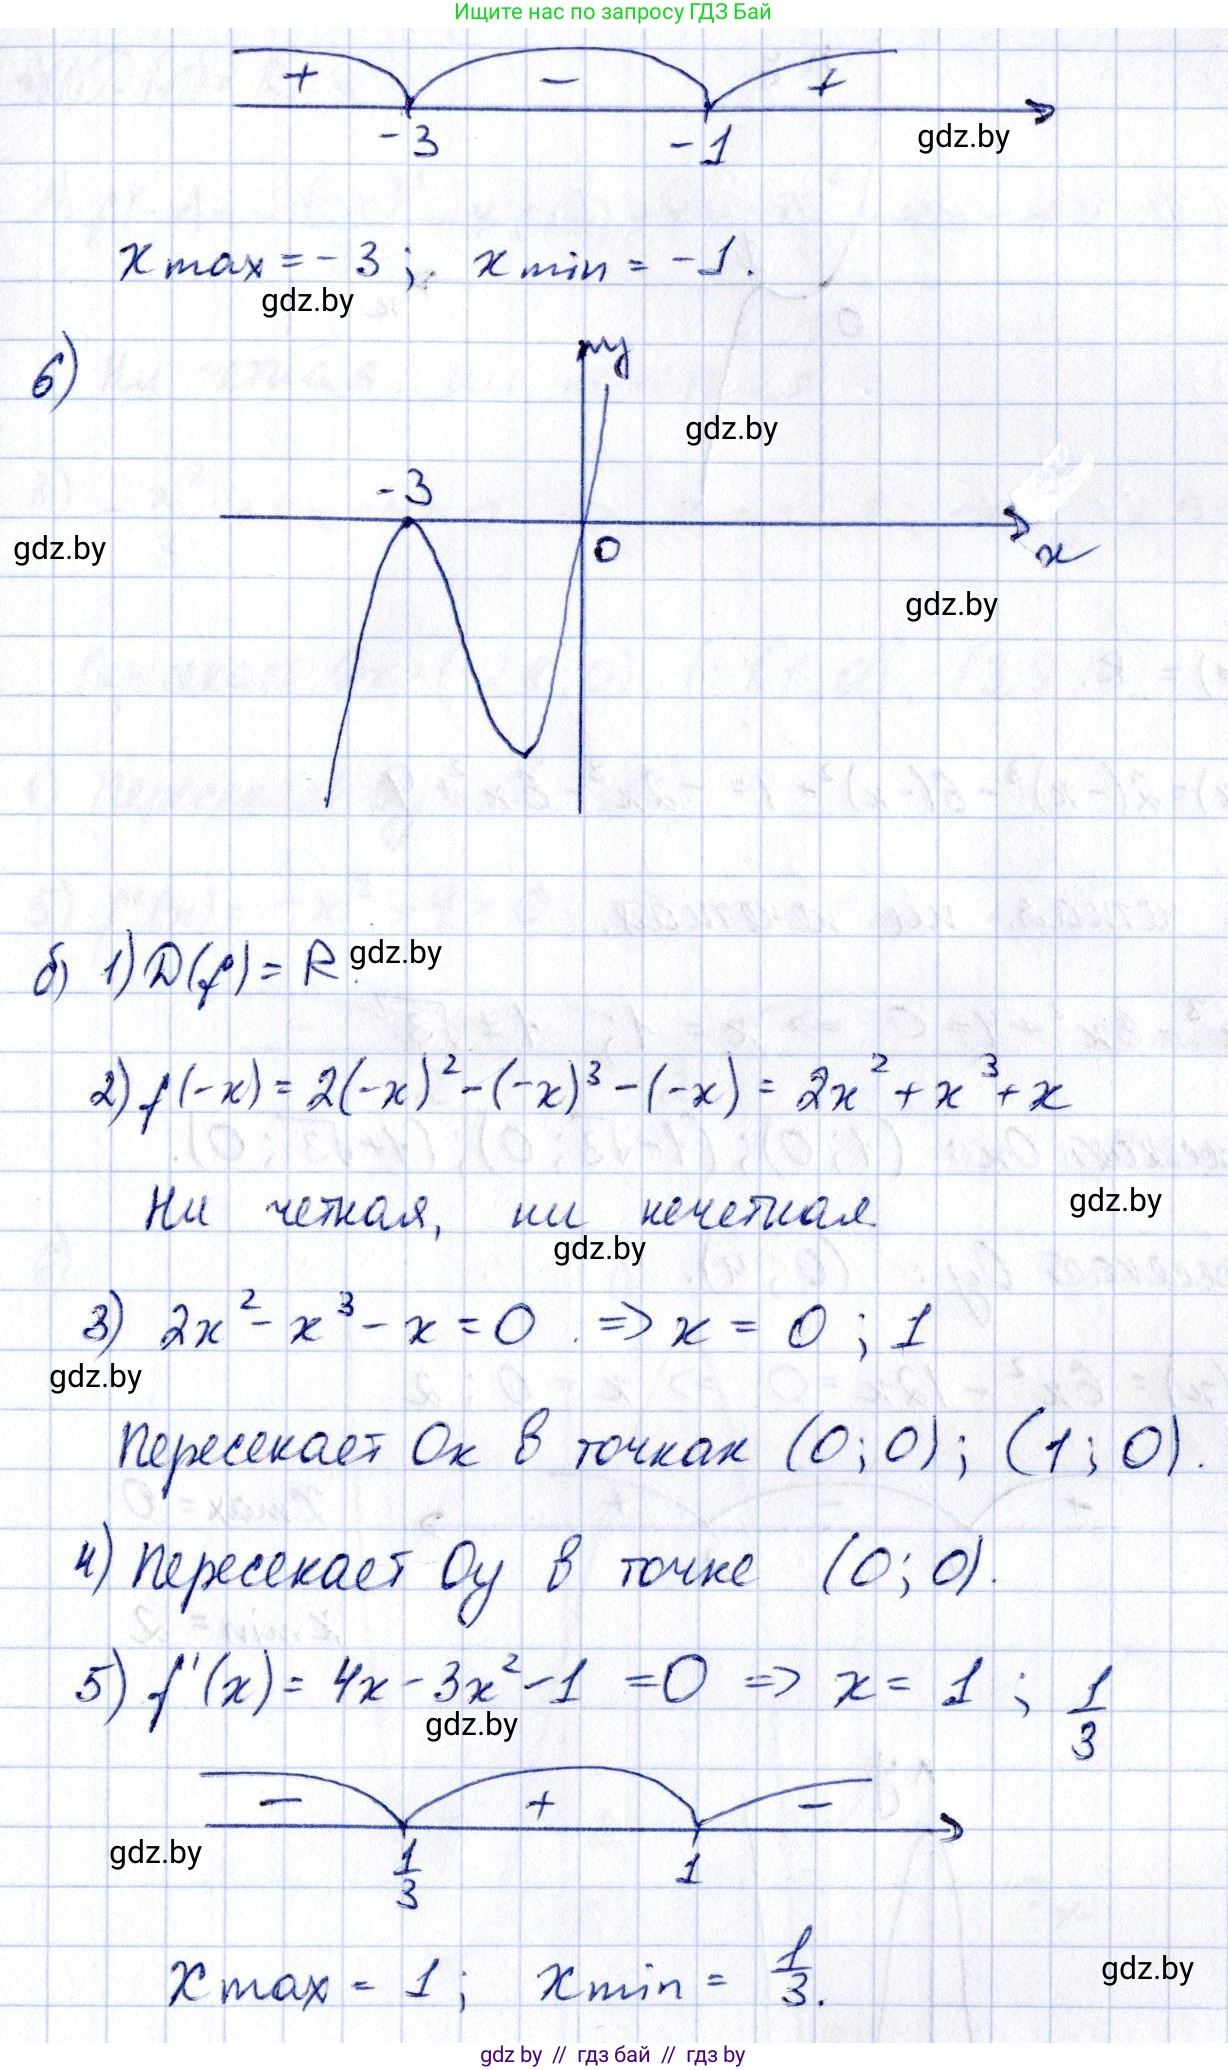 Ищите нас по запросу ГДЗ Бай
+ − +
-3 -1
gdz.by
x max = -3; x min = -1.
gdz.by
6)
y
gdz.by
-3
gdz.by
0
x
gdz.by
б) 1) D(f) = R.
gdz.by
2) f(-x) = 2(-x)² - (-x)³ - (-x) = 2x² + x³ + x
Ни четная, ни нечетная.
gdz.by
gdz.by
3) 2x² - x³ - x = 0 . => x = 0 ; 1
gdz.by
Пересекает Ox в точках (0; 0); (1; 0).
4) Пересекает Oy в точке (0; 0).
5) f'(x) = 4x - 3x² - 1 = 0 => x = 1 ; 1/3
gdz.by
− + −
gdz.by
1/3 1
x max = 1; x min = 1/3.
gdz.by
gdz.by // гдз бай // гдз by